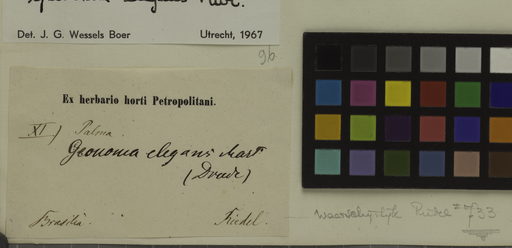 Det. J. G. Wessels Boer Utrecht, 1967
96
Ex herbario horti Petropolitani.
XI) Palma
Geonoma elegans Mart
(Drude)
Brasilia. Riedel.
waarschijnlijk Riedel #733